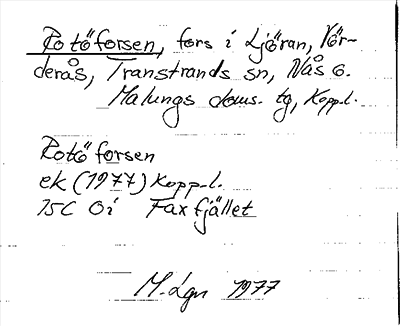 Rotöforsen, fors i Ljöran, Vör-
derås, Transtrands sn, Nås o.
Malungs doms. tg, Kopp.l.
Rotöforsen
ek (1977) Kopp.l.
15C 0i Faxfjället
M. Lgn 1977